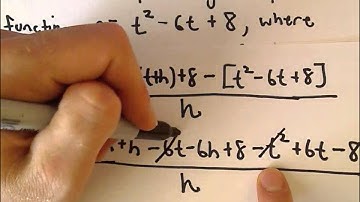 t² - 6t + 8, where
(t+h) + 8 - [t² - 6t + 8]
h
+ h - 6t - 6h + 8 - t² + 6t - 8
h